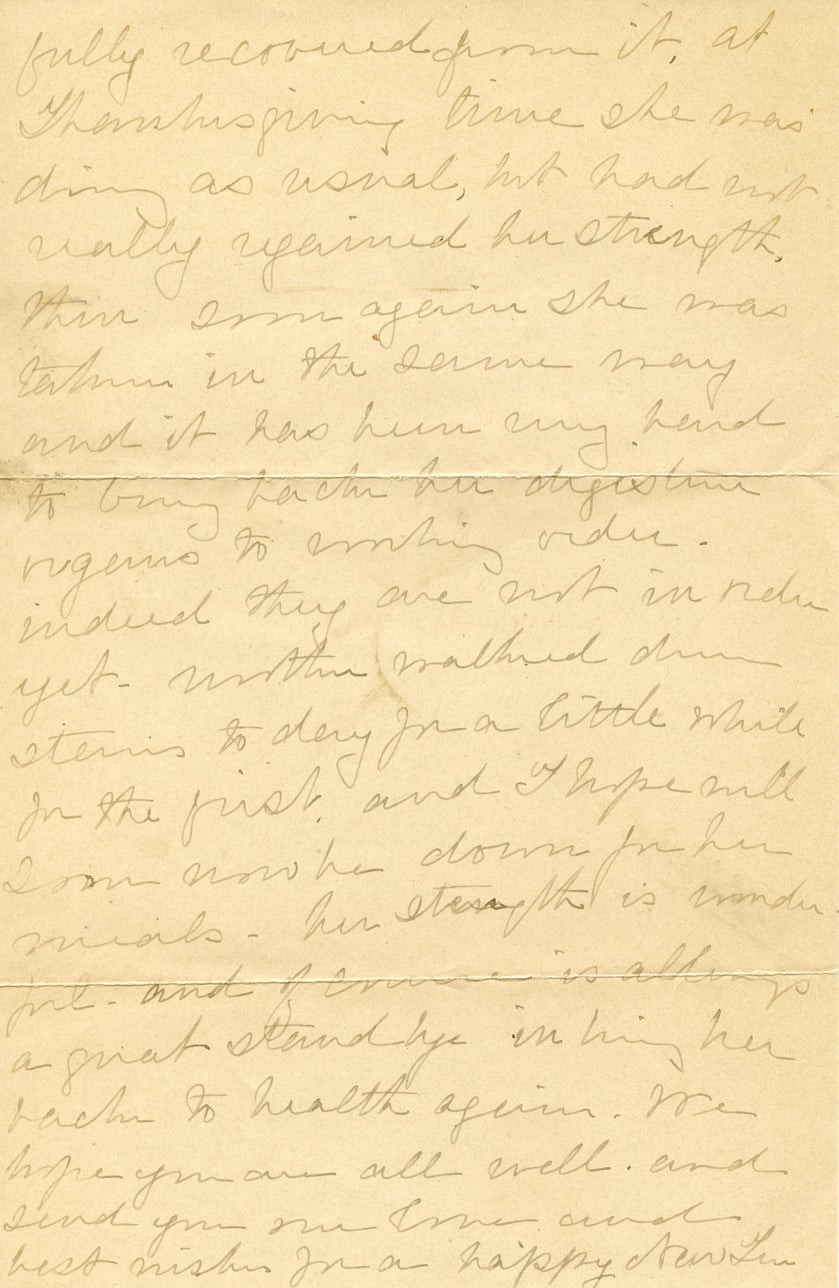 fully recovered from it, at
Thanksgiving time she was
doing as usual, but had not
really regained her strength.
then soon again she was
taken in the same way
and it has been very hard
to bring back her digestive
organs to working order.
indeed they are not in order
yet - mother walked down
stairs to day for a little while
for the first, and I hope will
soon now be down for her
meals - her strength is wonder
ful - and of course is always
a great stand bye in bring her
back to health again. We
hope you are all well. and
send you our love and
best wishes for a happy New Year